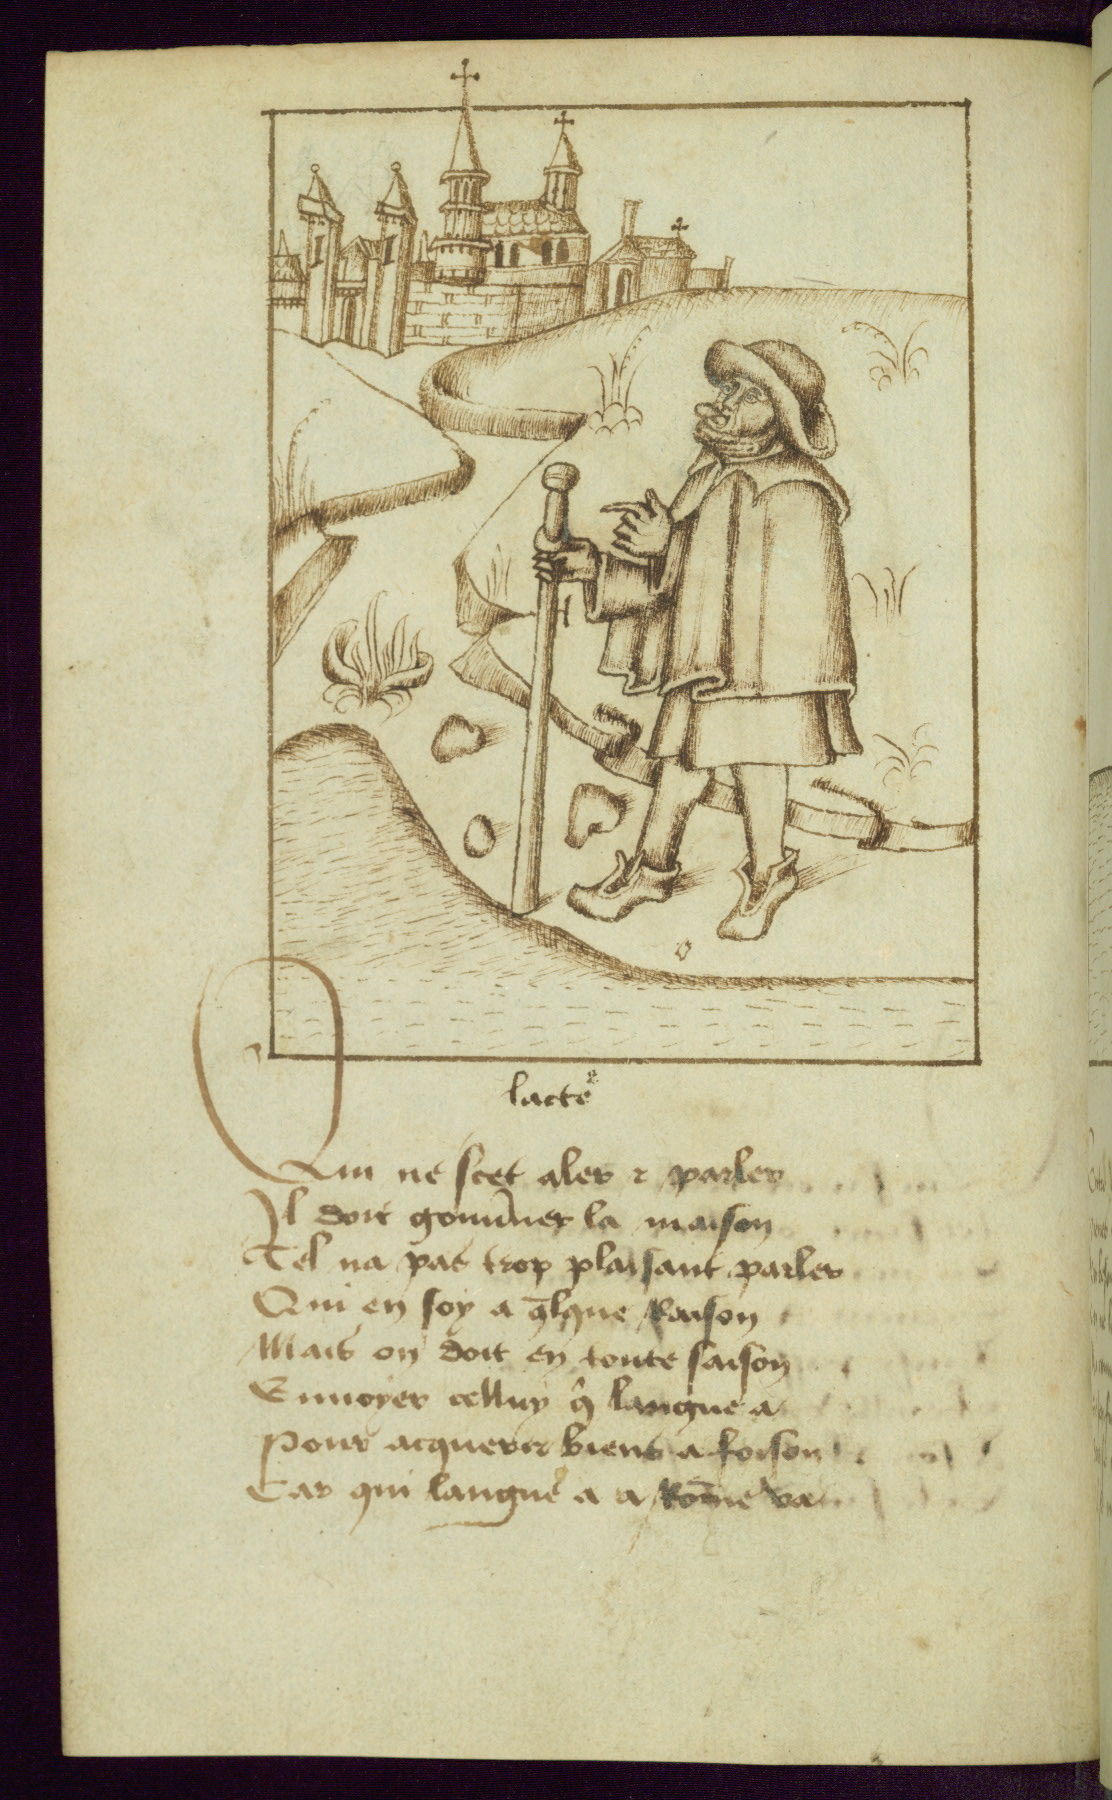 lacteᵉ
Qui ne scet aler ⁊ parler
Il doit gouu̾ner la maison
Tel na pas trop plaisant parler
Qui en soy a q̄lque Raison
Mais on doit en toute saison
Enuoyer celluy q̄ langue a
Pour acquerir biens a foison
Car qui langue a a Rom̄e va